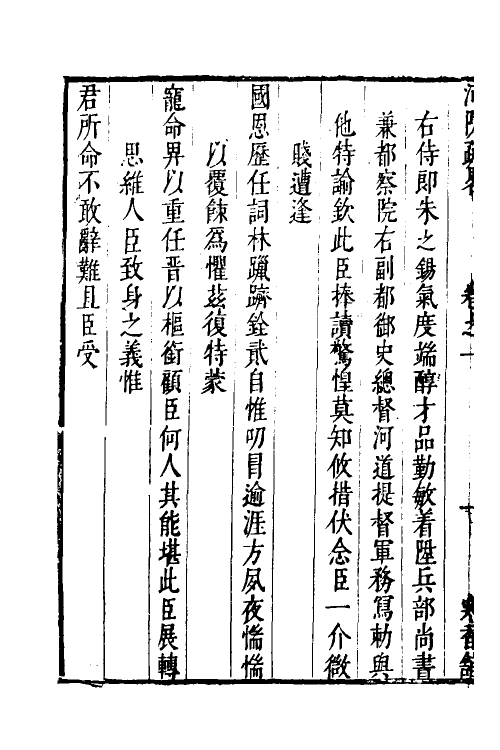 右侍郎朱之錫氣度端醇才品勤敏着陞兵部尚書
兼都察院右副都御史總督河道提督軍務寫勅與
他特諭欽此臣捧讀驚惶莫知攸措伏念臣一介微
賤遭逢
國恩歷任詞林躐躋銓貳自惟叨冒逾涯方夙夜惴惴
以覆餗為懼茲復特蒙
寵命畀以重任晋以樞銜顧臣何人其能堪此臣展轉
思維人臣致身之義惟
君所命不敢辭難且臣受